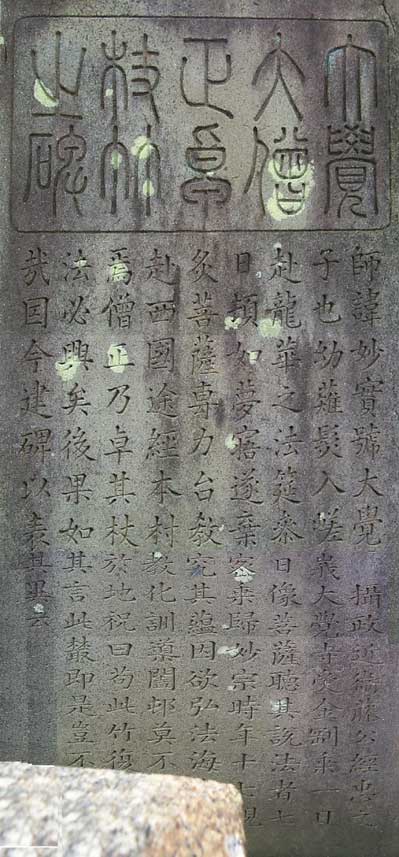 大覺
大僧
正
枝竹
之碑
師諱妙實號大覺 攝政近衛藤公經忠之
子也幼薙髮入嵯峩大覺寺受金剛乘一日
赴龍華之法筵参日像菩薩聽其説法者七
日頓如夢寤遂棄密乘歸妙宗時年十七視
灸菩薩專力台教究其蘊因欲弘法海
赴西國途經本村教化訓藥闔邨莫不
焉僧正乃卓其杖於地祝曰苟此竹復
法必興矣後果如其言此藂即是豈不
哉因今建碑以表其異云